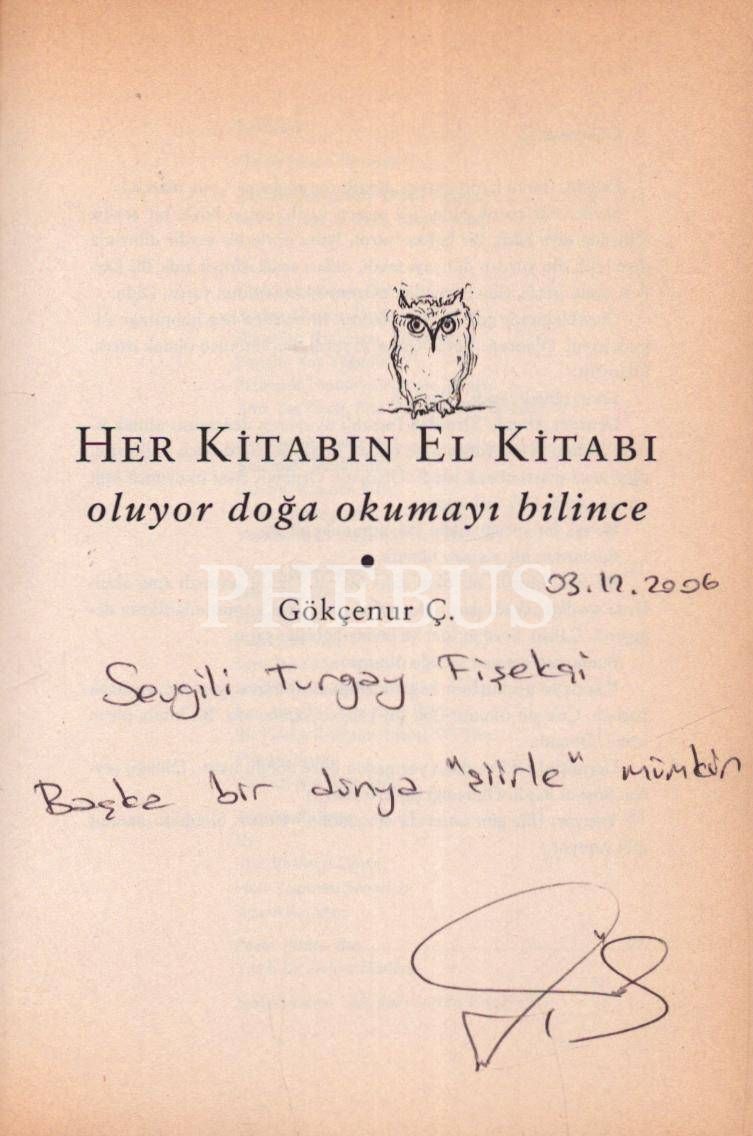 HER KİTABIN EL KİTABI
oluyor doğa okumayı bilince
PHEBUS
03.12.2006
Gökçenur Ç.
Sevgili Turgay Fişekçi
Başka bir dünya "şiirle" mümkün